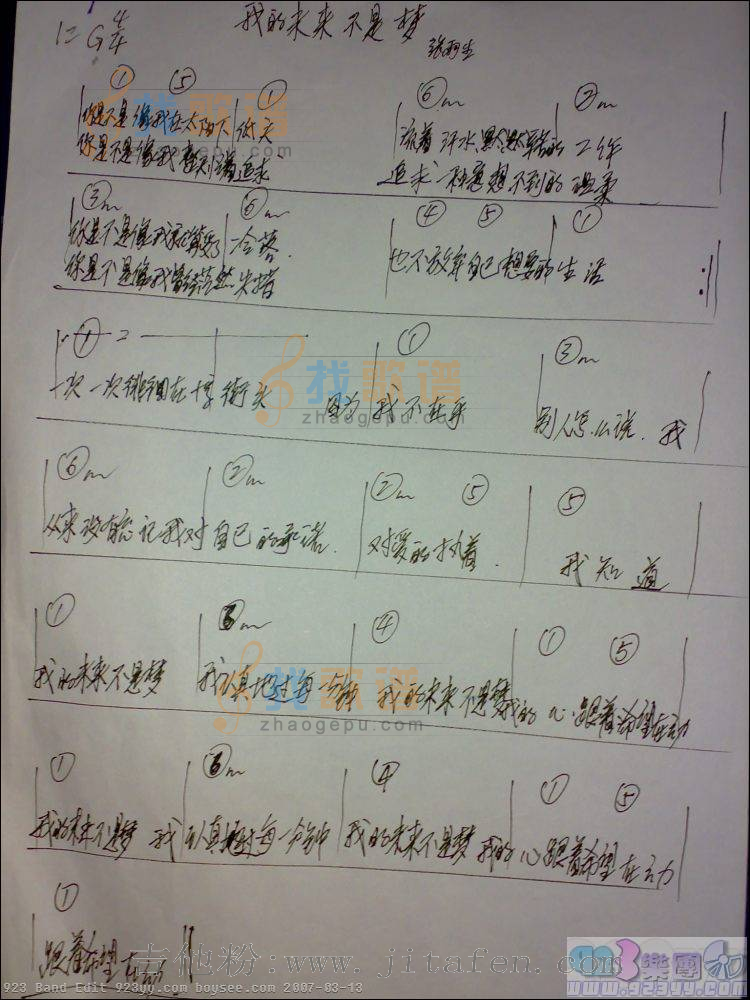 1=G 4/4 我的未来不是梦
张雨生
① ⑤ ① ⑥m ②m
你是不是像我在太阳下低头 流着汗水默默辛苦的工作
你是不是像我整天忙着追求 追求一种意想不到的温柔
③m ⑥m ④ ⑤ ①
你是不是像我就算受了冷落 也不放弃自己想要的生活
你是不是像我曾经茫然失措
① 2 ① ③m
一次一次徘徊在十字街头 因为我不在乎 别人怎么说. 我
⑥m ②m ②m ⑤ ⑤
从来没有忘记我对自己的承诺. 对爱的执着. 我知道
① ③m ④ ① ⑤
我的未来不是梦 我认真地过每一分钟 我的未来不是梦 我的心跟着希望在动
① ③m ④ ① ⑤
我的未来不是梦 我认真地过每一分钟 我的未来不是梦 我的心跟着希望在动
①
跟着希望在动
找歌谱
zhaogepu.com
找歌谱
zhaogepu.com
找歌谱
zhaogepu.com
吉他粉:www.jitafen.com
923 Band Edit 923yy.com boysee.com 2007-03-13
乐團
www.923yy.com